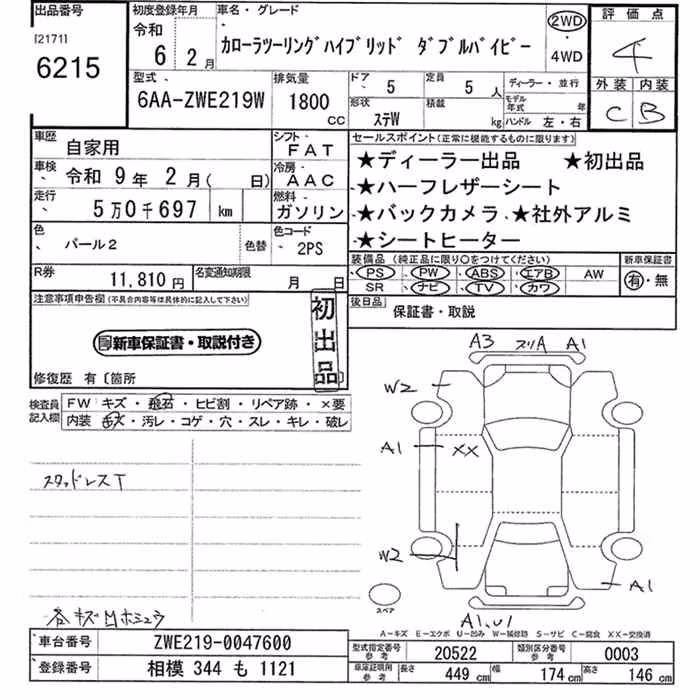 出品番号
[2171]
6215
初度登録年月
令和
6 2月
車名・グレード
カローラツーリングハイブリッド ダブルバイビー
2WD
・
4WD
評価点
4
外装 内装
C B
型式
6AA-ZWE219W
排気量
1800
CC
ドア
5
定員
5 人
形状
ステW
積載
kg
ディーラー・並行
モデル年式 年
ハンドル 左・右
車歴
自家用
シフト
FAT
車検
令和 9年 2月( 日)
冷房
AAC
走行
5万0千697 km
燃料
ガソリン
色
パール2
色替
色コード
2PS
R券
11,810円
名変通知期限
月 日
セールスポイント(正常に機能するものに限ります)
★ディーラー出品 ★初出品
★ハーフレザーシート
★バックカメラ ★社外アルミ
★シートヒーター
装備品(純正品に限り○をつけてください)
PS PW ABS エアB AW
SR ナビ TV カワ
新車保証書
有・無
後日品
保証書・取説
注意事項申告欄(不具合内容等は具体的に記入して下さい)
新車保証書・取説付き
初出品
修復歴 有〔箇所 〕
検査員記入欄
FW キズ・飛石・ヒビ割・リペア跡・×要
内装 キズ・汚レ・コゲ・穴・スレ・キレ・破レ
スタッドレスT
各キズ凹ホシュウ
A3 スリA A1
W2
A1 XX
W2
A1
A1,U1
スペア
A-キズ E-エクボ U-凹み W-補修跡 S-サビ C-腐食 XX-交換済
車台番号
ZWE219-0047600
登録番号
相模 344 も 1121
型式指定番号
参考
20522
類別区分番号
参考
0003
車庫証明用
参考
長さ
449 cm
幅
174 cm
高さ
146 cm